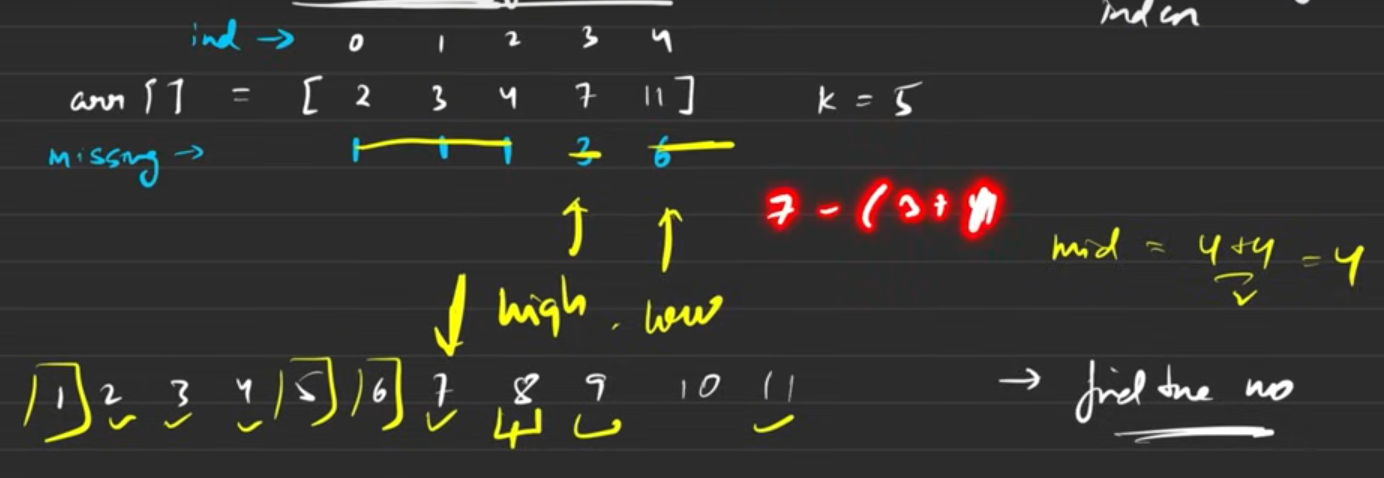 index
ind → 0 1 2 3 4
arr [] = [ 2 3 4 7 11 ] K = 5
Missing → 1 1 1 3 6
7 - ( 3 + 1
mid = 4+4 = 4
2
high . low
1 2 3 4 5 6 7 8 9 10 11 → find the no
4